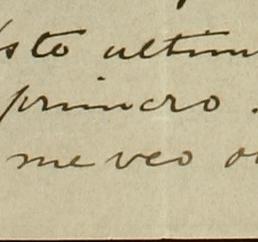 sto ultim
primero.
me veo o